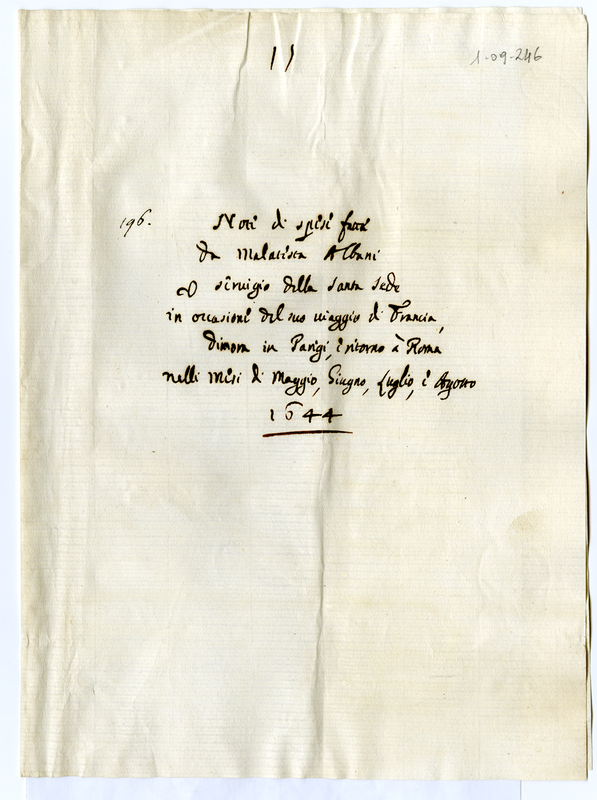 15
1-09-246
196.
Note di spese fatte
da Malatesta Albani
servigio della Santa Sede
in occasione del suo viaggio di Francia,
dimora in Parigi, e ritorno à Roma
nelli mesi di Maggio, Giugno, Luglio, e Agosto
1644